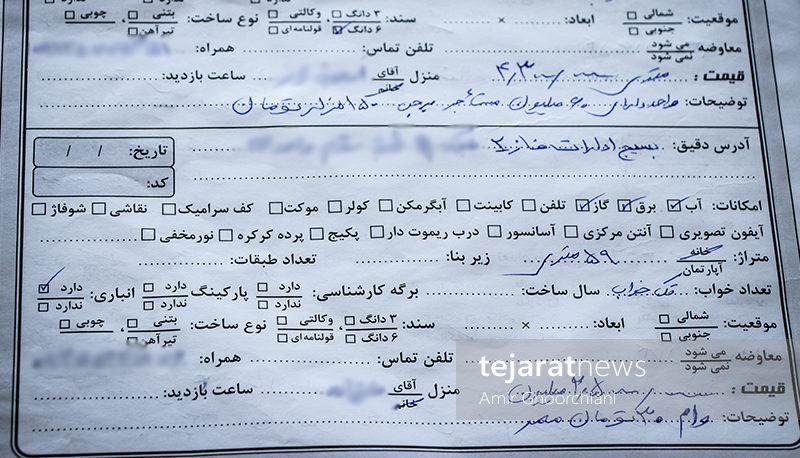 موقعیت: شمالی جنوبی ابعاد: × سند: ۳ دانگ ۶ دانگ وکالتی قولنامه‌ای نوع ساخت: بتنی، تیرآهن چوبی
معاوضه می شود نمی شود تلفن تماس: همراه:
قیمت: متری ۴/۳۰۰/۰۰۰ منزل آقای خانم ساعت بازدید:
توضیحات: واحد دارای ۶۰ میلیون مستأجر
آدرس دقیق: بسیج ادارات فاز ۲
تاریخ: / /
کد:
امکانات: آب برق گاز تلفن کابینت آبگرمکن کولر موکت کف سرامیک نقاشی شوفاژ
آیفون تصویری آنتن مرکزی آسانسور درب ریموت دار پکیج پرده کرکره نورمخفی
متراژ: خانه آپارتمان ۵۹ متری زیر بنا: تعداد طبقات:
تعداد خواب: تک خواب سال ساخت: برگه کارشناسی: دارد ندارد پارکینگ: دارد ندارد انباری: دارد ندارد
موقعیت: شمالی جنوبی ابعاد: × سند: ۳ دانگ ۶ دانگ وکالتی قولنامه‌ای نوع ساخت: بتنی، تیرآهن چوبی
معاوضه می شود نمی شود تلفن تماس: همراه:
قیمت: میلیون منزل آقای خانم ساعت بازدید:
توضیحات: وام ۳۰ تومان
tejaratnews
Amir Ghoorchiani